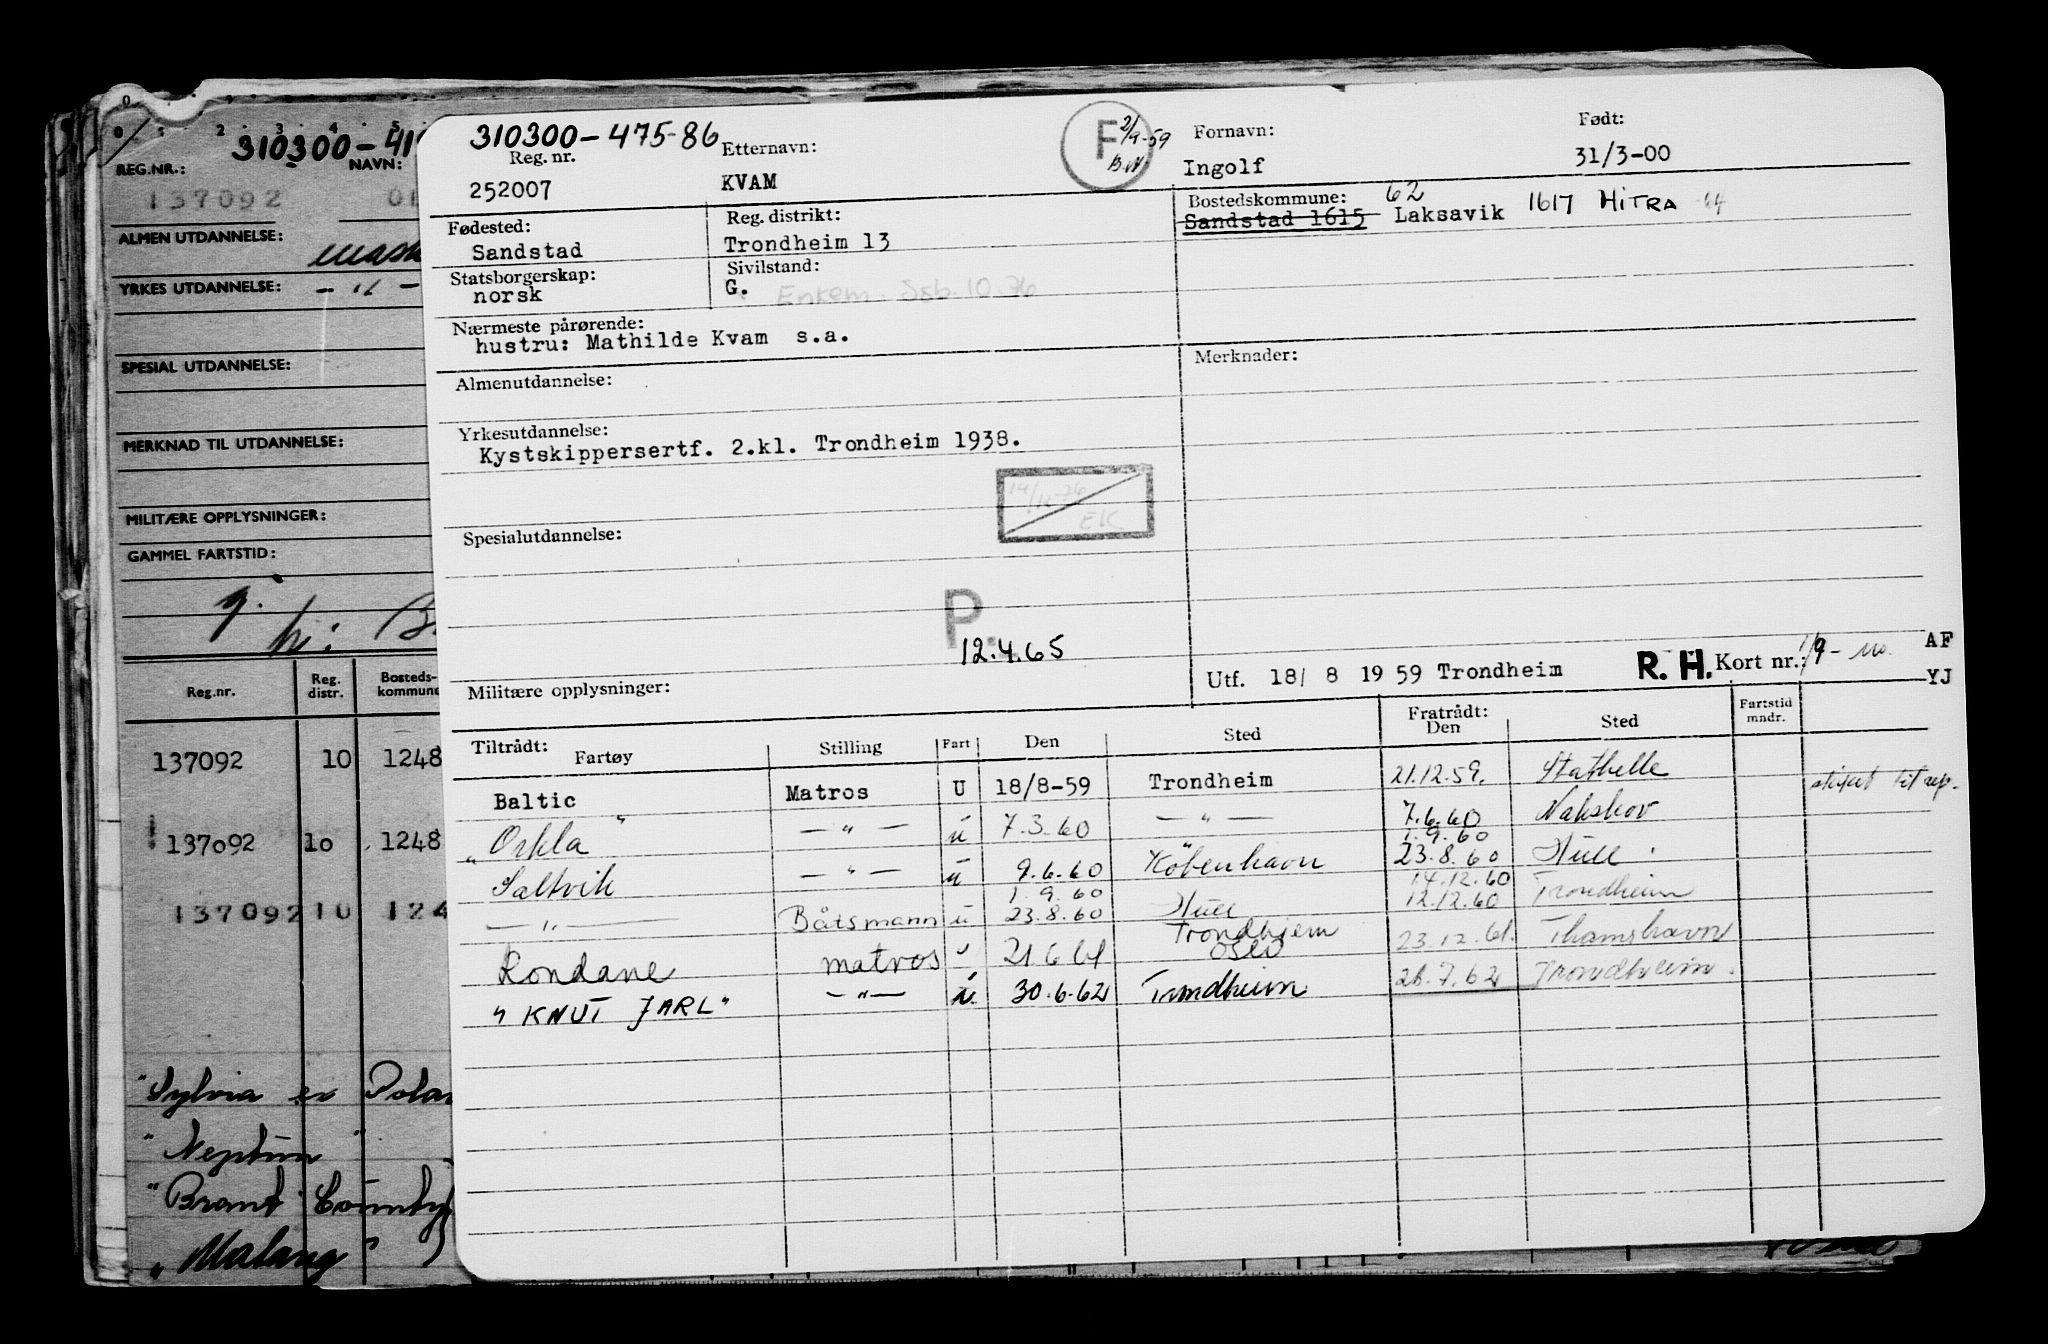 310300-41
REG.NR.:
NAVN:
137092
ALMEN UTDANNELSE:
YRKES UTDANNELSE: - " -
SPESIAL UTDANNELSE:
MERKNAD TIL UTDANNELSE:
MILITÆRE OPPLYSNINGER:
GAMMEL FARTSTID:
Reg.nr. Reg. distr. Bosteds-kommune
137092 10 1248
137092 1o 1248
137092 10 124
"Sylvia ex Polar
"Neptun"
"Brant County
"Malang"
310300-475-86
Reg. nr.
252007
Etternavn:
KVAM
F 2/9-59
B.N.
Fornavn:
Ingolf
Født:
31/3-00
Fødested:
Sandstad
Reg. distrikt:
Trondheim 13
Bostedskommune: 62
Sandstad 1615 Laksavik 1617 HITRA 64
Statsborgerskap:
norsk
Sivilstand:
G. Enkem. Ssb. 10.76
Nærmeste pårørende:
hustru: Mathilde Kvam s.a.
Merknader:
Almenutdannelse:
Yrkesutdannelse:
Kystskippersertf. 2.kl. Trondheim 1938.
14/11-76
EK
Spesialutdannelse:
P.
12.4.65
Militære opplysninger:
Utf. 18/ 8 19 59 Trondheim R. H. Kort nr.: 1/9- AF
YJ
Tiltrådt: Fartøy Stilling Fart Den Sted Fratrådt: Den Sted Fartstid mndr.
Baltic Matros U 18/8-59 Trondheim 21.12.59. Stathelle
"Orkla" — " — u 7.3.60 — " — 7.6.60 Nakskov
Saltvik — " — u 9.6.60 København 1.9.60 23.8.60 Hull
— " — Båtsmann u 1.9.60 23.8.60 Hull 14.12.60 12.12.60 Trondheim
Rondane matros u 21.6.61 Trondhjem Oslo 23.12.61. Thamshavn
"KNUT JARL" — " — u. 30.6.62 Trondheim 28.7.62 Trondheim.